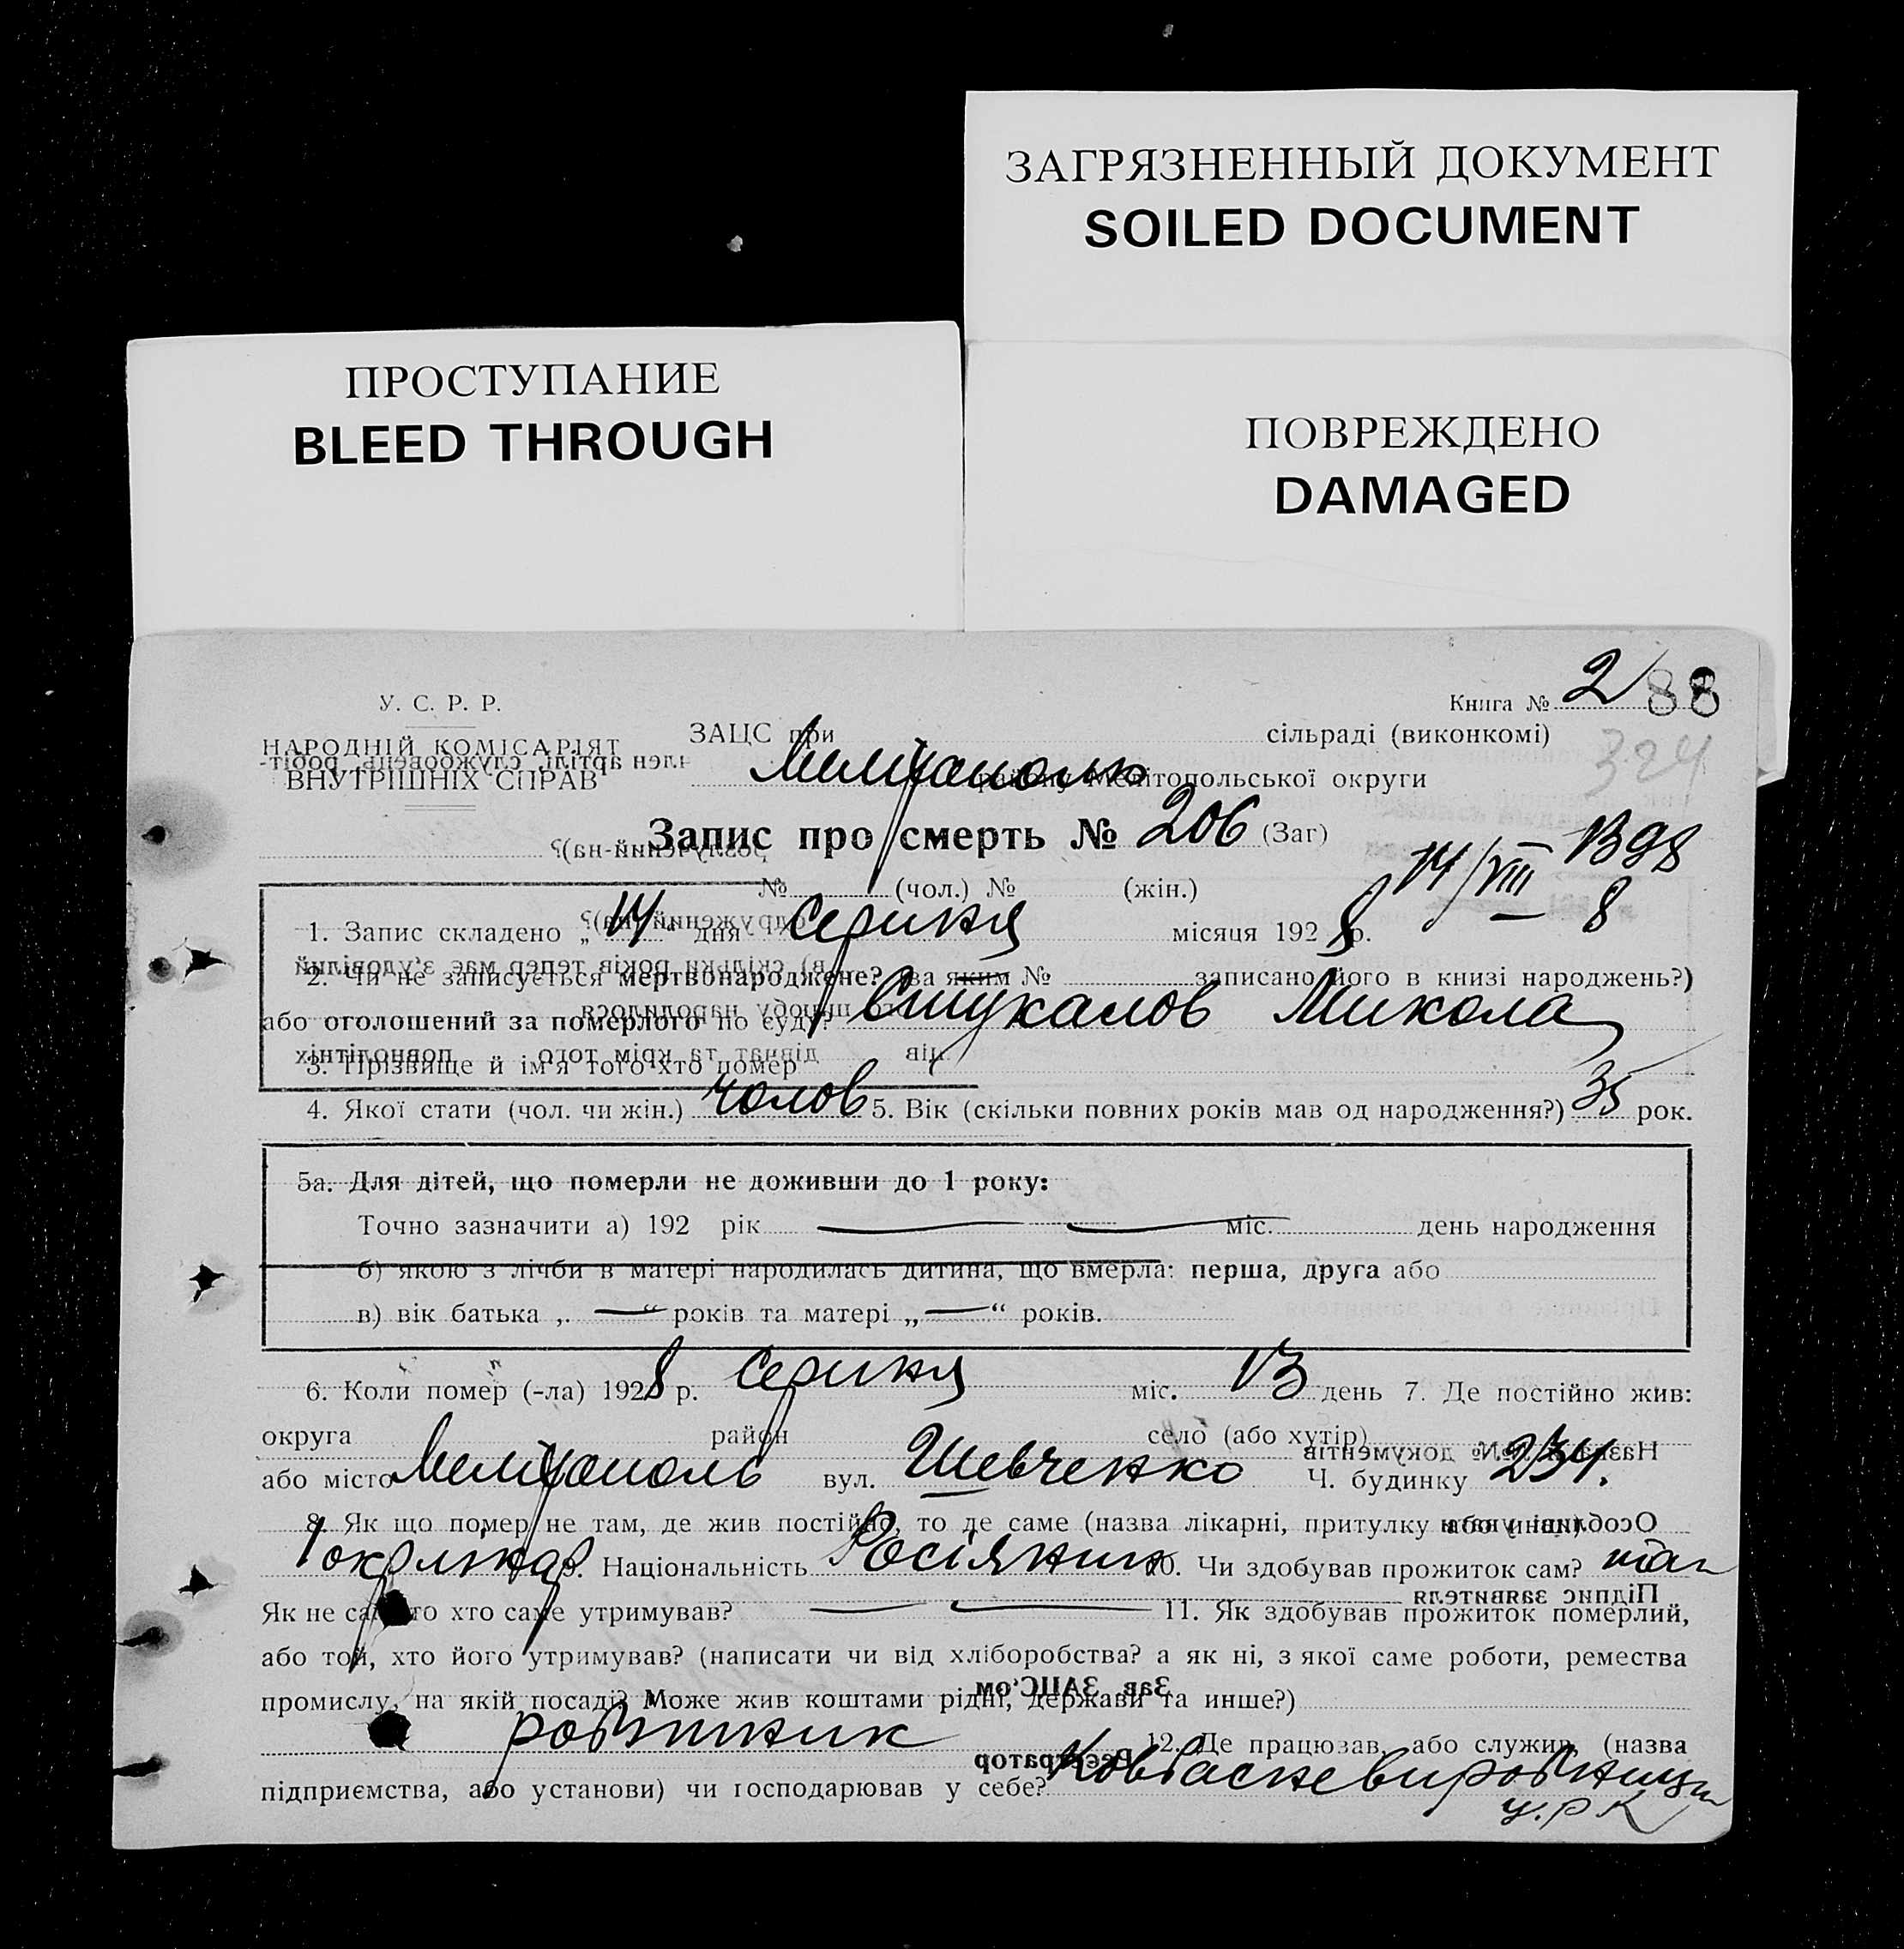 ЗАГРЯЗНЕННЫЙ ДОКУМЕНТ
SOILED DOCUMENT
ПРОСТУПАНИЕ
BLEED THROUGH
ПОВРЕЖДЕНО
DAMAGED
У. С. Р. Р.
НАРОДНІЙ КОМІСАРІЯТ
ВНУТРІШНІХ СПРАВ
Книга № 2 88
324
ЗАЦС при сільраді (виконкомі)
району Мелітопольської округи
Запис про смерть № 206 (Заг)
14/VIII – 8
№ (чол.) № (жін.)
1. Запис складено „14“ дня Серпня місяця 1928 р.
2. Чи не записується мертвонароджене? (за яким № записано його в книзі народжень?)
або оголошений за померлого по суду?
3. Прізвище й ім'я того хто помер Микола
4. Якої стати (чол. чи жін.) чолов 5. Вік (скільки повних років мав од народження?) 35 рок.
5а. Для дітей, що померли не доживши до 1 року:
Точно зазначити а) 192 рік — — міс. день народження
б) якою з лічби в матері народилась дитина, що вмерла: перша, друга або
в) вік батька „ — “ років та матері „ — “ років.
6. Коли помер (-ла) 1928 р. Серпня міс. 13 день 7. Де постійно жив:
округа район село (або хутір)
або місто Мелітополь вул. Шевченко Ч. будинку 234.
8. Як що помер не там, де жив постійно, то де саме (назва лікарні, притулку або инше)
9. Національність Росіянин 10. Чи здобував прожиток сам? так
Як не сам то хто саме утримував? — — 11. Як здобував прожиток померлий,
або той, хто його утримував? (написати чи від хліборобства? а як ні, з якої саме роботи, ремества
промислу, на якій посаді? Може жив коштами рідні, держави та инше?)
робітник 12. Де працював, або служив, (назва
підприємства, або установи) чи господарював у себе?